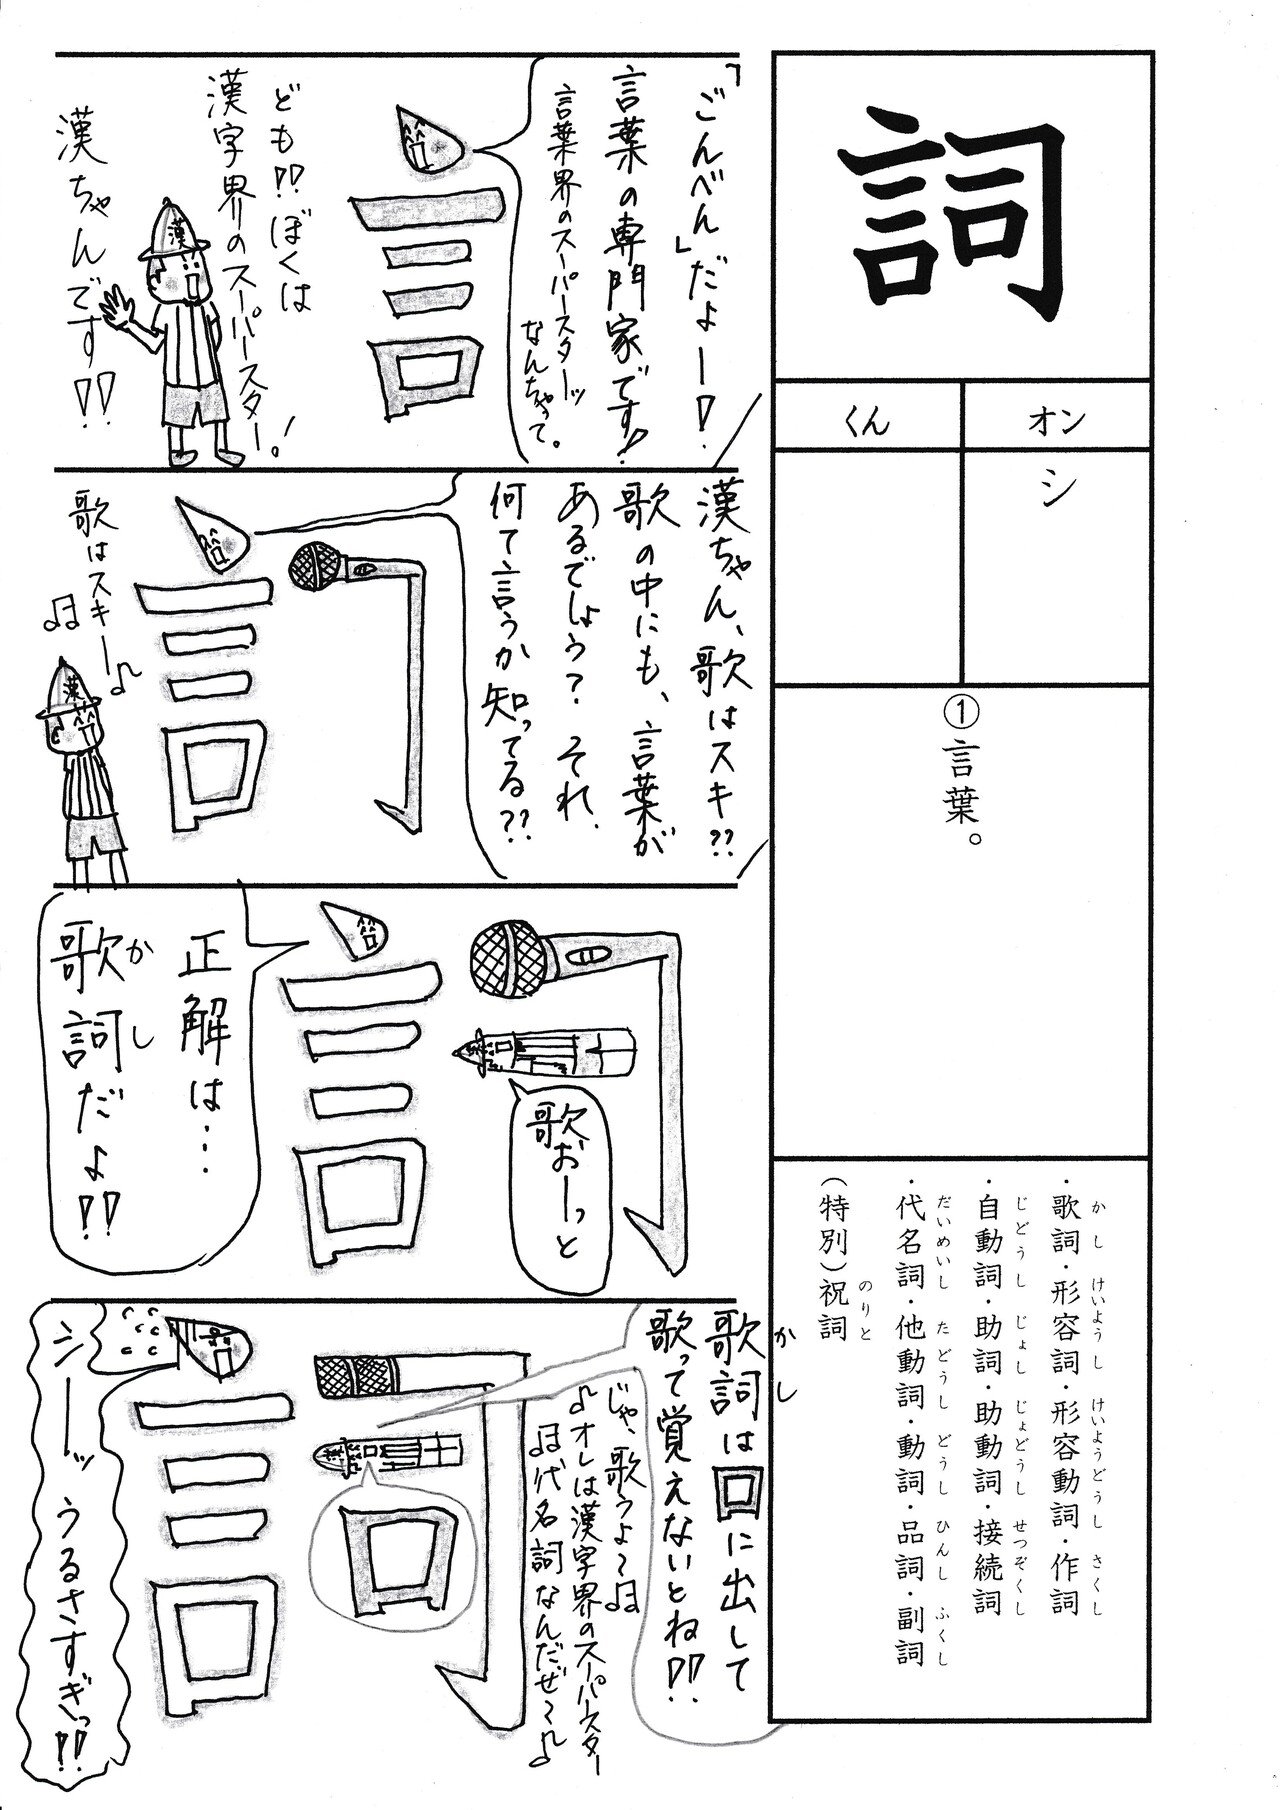 詞
オン
くん
シ
①言葉。
・歌詞・形容詞・形容動詞・作詞
かし けいようし けいようどうし さくし
・自動詞・助詞・助動詞・接続詞
じどうし じょし じょどうし せつぞくし
・代名詞・他動詞・動詞・品詞・副詞
だいめいし たどうし どうし ひんし ふくし
（特別）祝詞
のりと
「ごんべん」だよー！
言葉の専門家です！
言葉界のスーパースターッ
なんちゃって。
言
ども!!ぼくは
漢字界のスーパースター！
漢ちゃんです!!
漢
漢ちゃん、歌はスキ??
歌の中にも、言葉が
あるでしょう？それ、
何て言うか知ってる??
言
歌はスキー♪
漢
歌おーっと
言
正解は…
歌詞だよ!!
かし
歌詞は口に出して
かし
歌って覚えないとね!!
じゃ、歌うよ～♫
♪オレは漢字界のスーパースター
♫代名詞なんだぜ～♪
詞
シーッうるさすぎっ!!